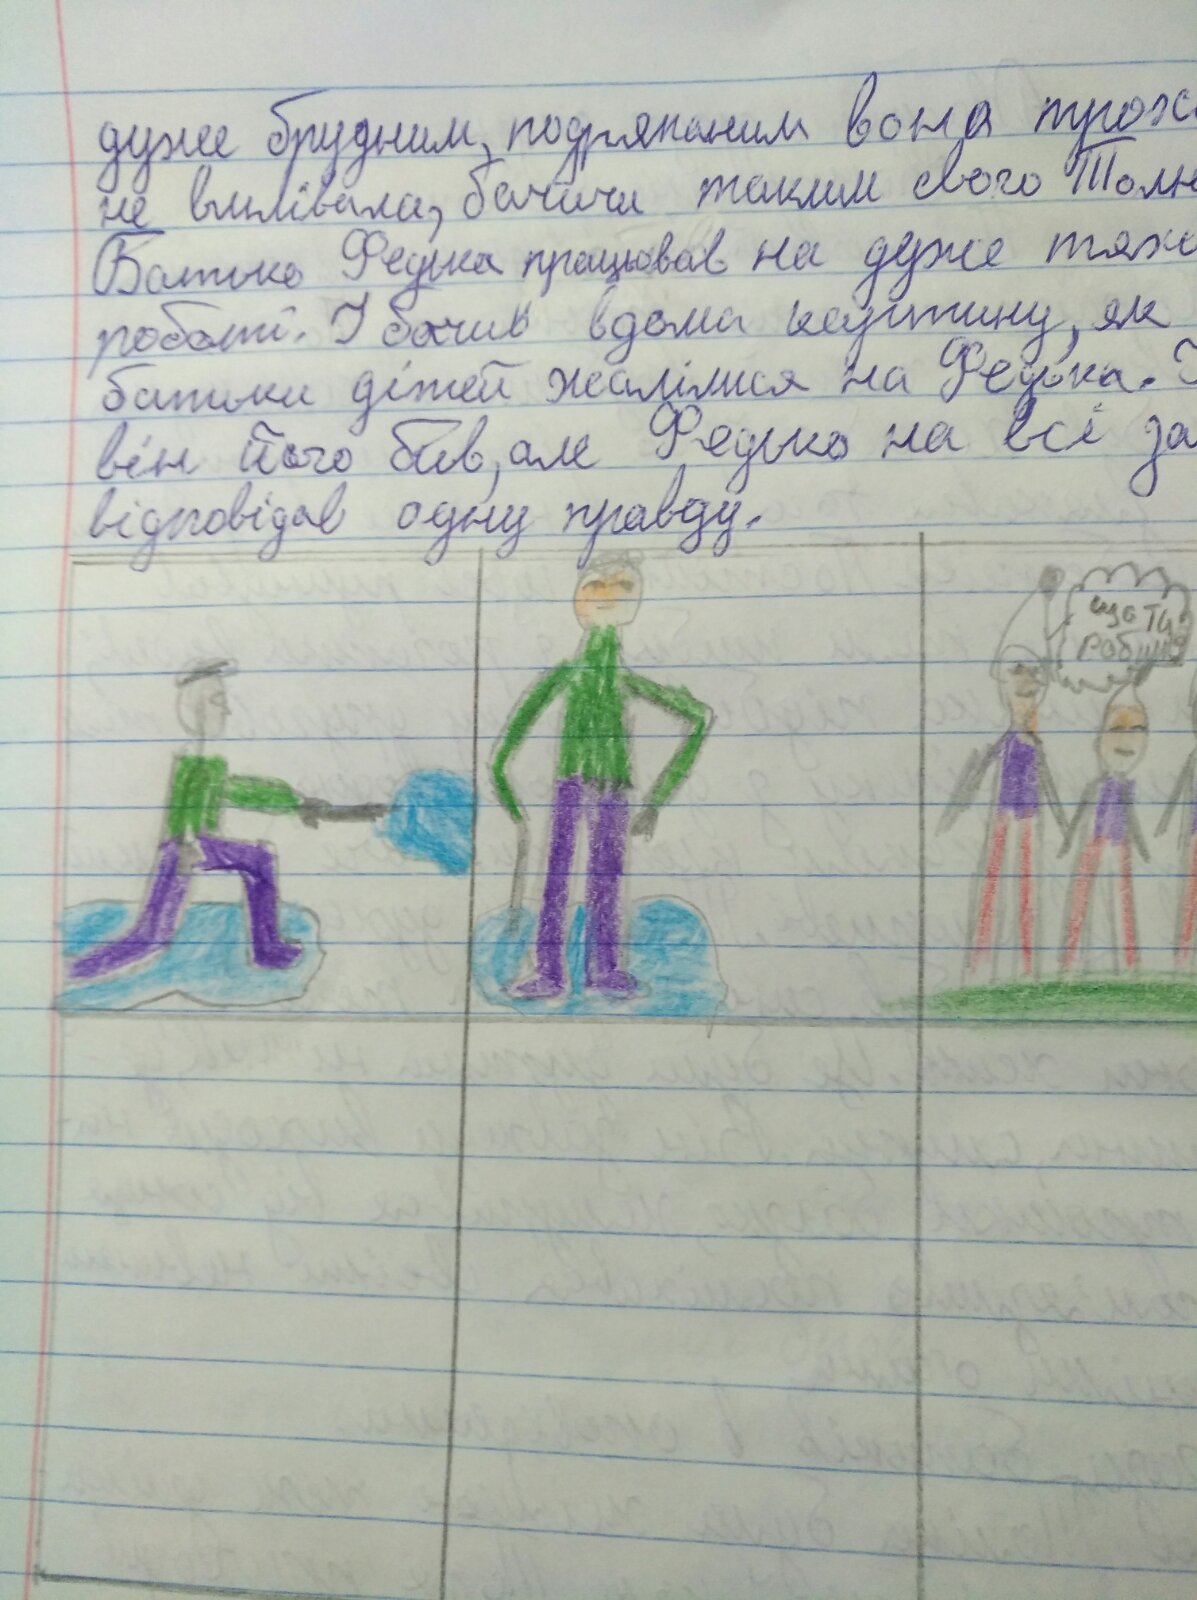 дуже брудним, подряпаним вона трох
не вмлівала, бачачи таким свого Толі
Батько Федька працював на дуже тяж
роботі. І бачив вдома картину, як
батьки дітей жалілися на Федька. І
він його бив, але Федько на всі за
відповідав одну правду.
що ти
робиш